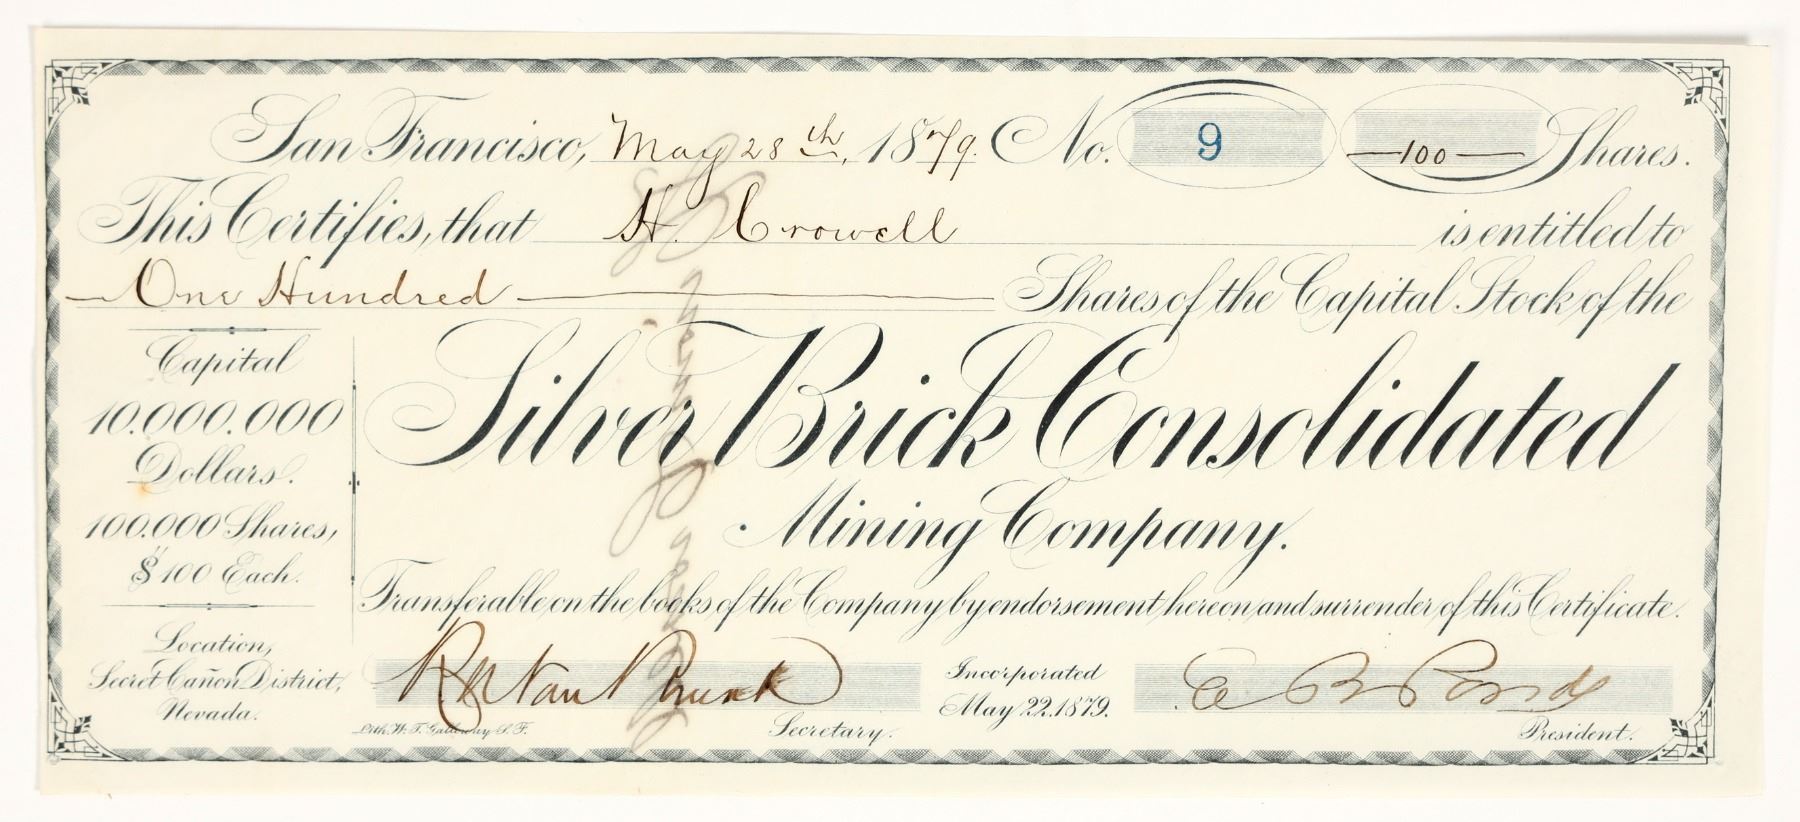 San Francisco, May 28th, 1879. No. 9 —100— Shares.
This Certifies, that H. Crowell is entitled to
One Hundred Shares of the Capital Stock of the
Capital
10.000.000
Dollars.
100.000 Shares,
$100 Each.
Silver Brick Consolidated
Mining Company.
Transferable on the books of the Company by endorsement hereon and surrender of this Certificate.
Location,
Secret Cañon District,
Nevada.
Incorporated
May 22. 1879.
Lith. W. T. Galloway S. F.
Secretary.
President.